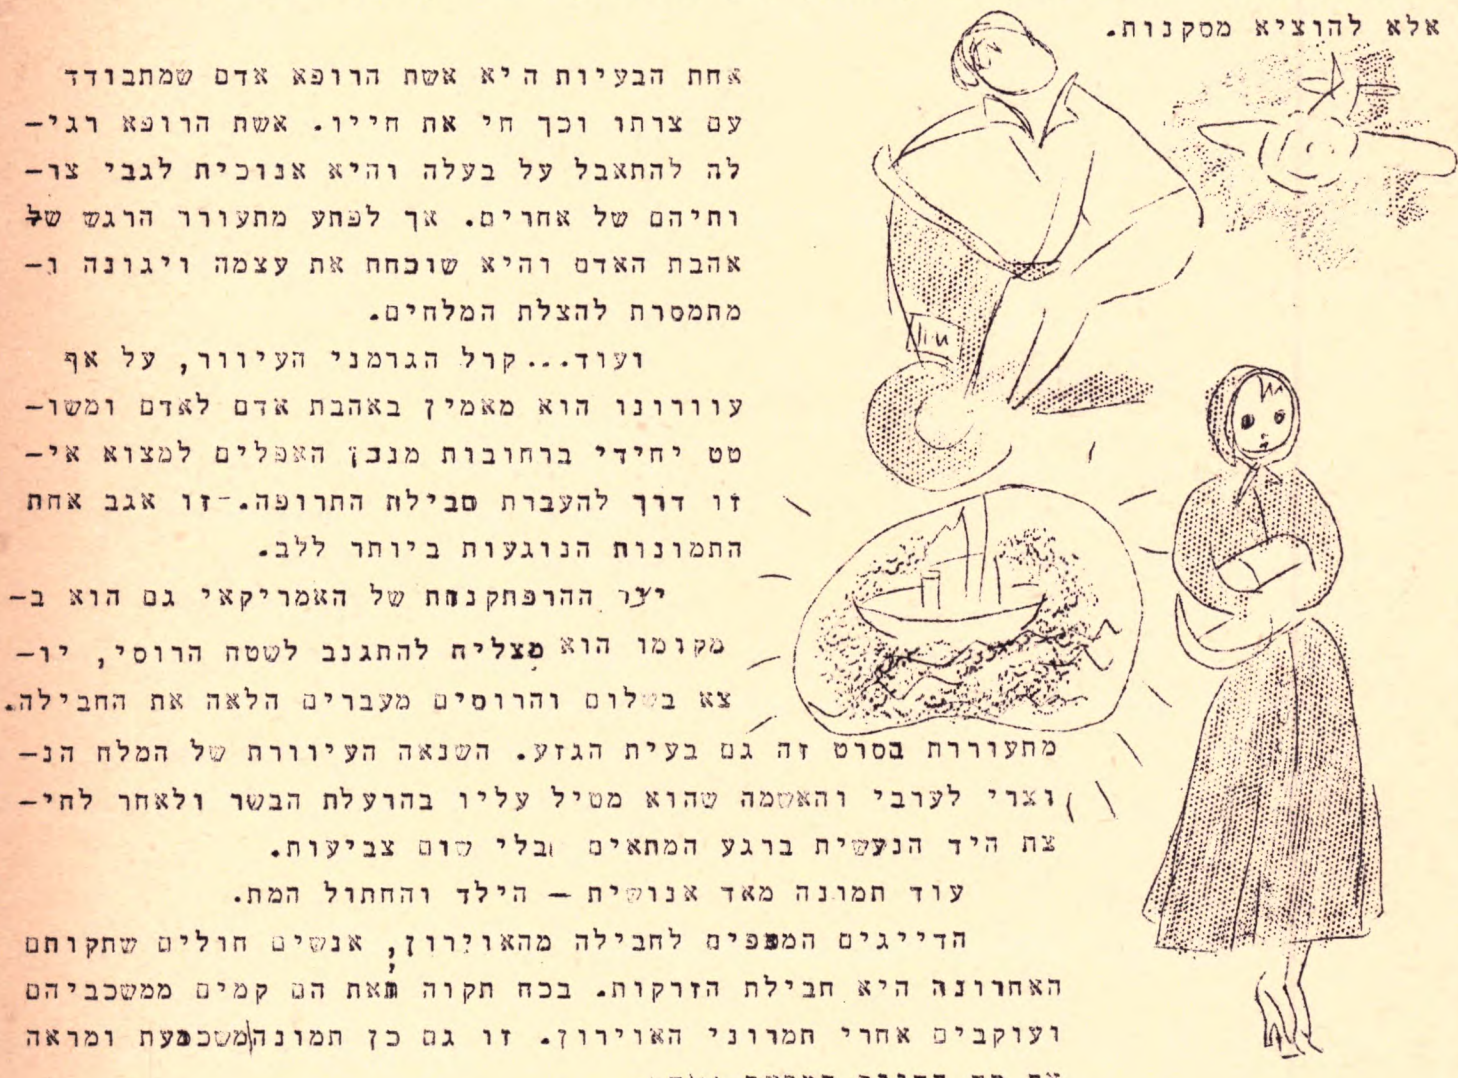 אלא להוציא מסקנות.
אחת הבעיות היא אשת הרופא אדם שמתבודד
עם צרתו וכך חי את חייו. אשת הרופא רגי-
לה להתאבל על בעלה והיא אנוכית לגבי צר-
ותיהם של אחרים. אך לפתע מתעורר הרגש של
אהבת האדם והיא שוכחת את עצמה ויגונה ו-
מתמסרת להצלת המלחים.
ועוד...קרל הגרמני העיוור, על אף
עוורונו הוא מאמין באהבת אדם לאדם ומשו-
טט יחידי ברחובות האפלים למצוא אי-
זו דרך להעברת חבילת התרופה.-זו אגב אחת
התמונות הנוגעות ביותר ללב.
יצר ההרפתקנות של האמריקאי גם הוא ב-
מקומו הוא מצליח להתגנב לשטח הרוסי, יו-
צא בשלום והרוסים מעברים הלאה את החבילה.
מתעוררת בסרט זה גם בעית הגזע. השנאה העיוורת של המלח הנ-
וצרי לערבי והאשמה שהוא מטיל עליו בהרעלת הבשר ולאחר לחי-
צת היד הנעשית ברגע המתאים בלי שום צביעות.
עוד תמונה מאד אנושית - הילד והחתול המת.
הדייגים המצפים לחבילה מהאוירון, אנשים חולים שתקותם
האחרונה היא חבילת הזרקות. בכח תקוה זאת הם קמים ממשכביהם
ועוקבים אחרי תמרוני האוירון. זו גם כן תמונה משכנעת ומראה